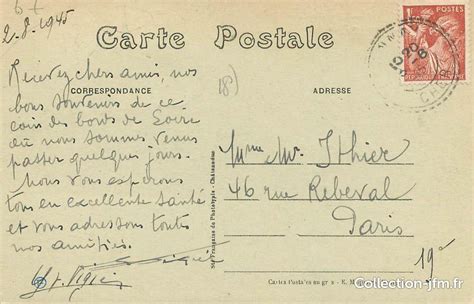 2.8.1945
Carte Postale
CORRESPONDANCE
ADRESSE
Recevez chers amis, nos
bons souvenirs de ce
coin des bords de Loire
où nous sommes venus
passer quelques jours.
Nous vous espérons
tous en excellente santé
et vous adressons toutes
nos amitiés.
Mme Mr. Ithier
46 rue Rebeval
Paris
19e
Sté Française de Phototypie - Châteauneuf
Cartes
Collection-jfm.fr